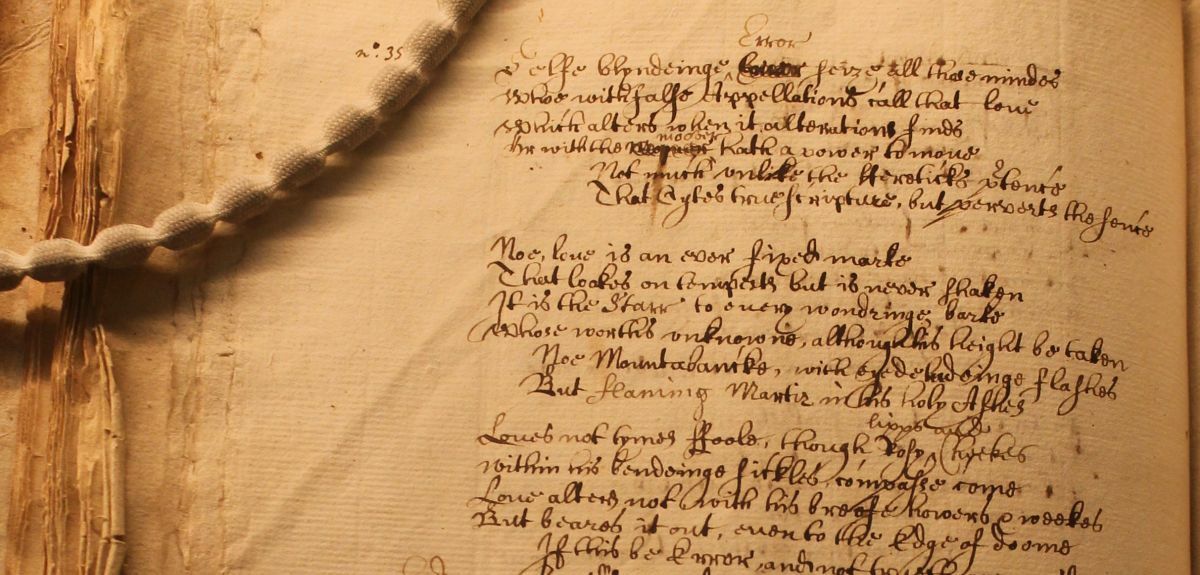 Error
n°. 35
Selfe blyndeinge seize all those mindes
Whoe with false Appellations call that love
Which alters when it alterations finds
moover
Or with the hath a power to move
Not much unlike the Heretickes p̄tence
That Cytes true scripture, but perverts the sence
Noe, love is an ever fixed marke
That lookes on tempests but is never shaken
It is the Starr to every wondringe barke
Whose worths unknowne, although his height be taken
Noe Mountabancke, with eyedeludeinge flashes
But flaming Martir in his holy Ashes
lipps and
Loves not tymes ffoole, though Rosy Cheekes
within his bendeinge sickles compasse come
Love alters not with his breefe howers & weekes
But beares it out, even to the Edge of doome
If this be Error, and not